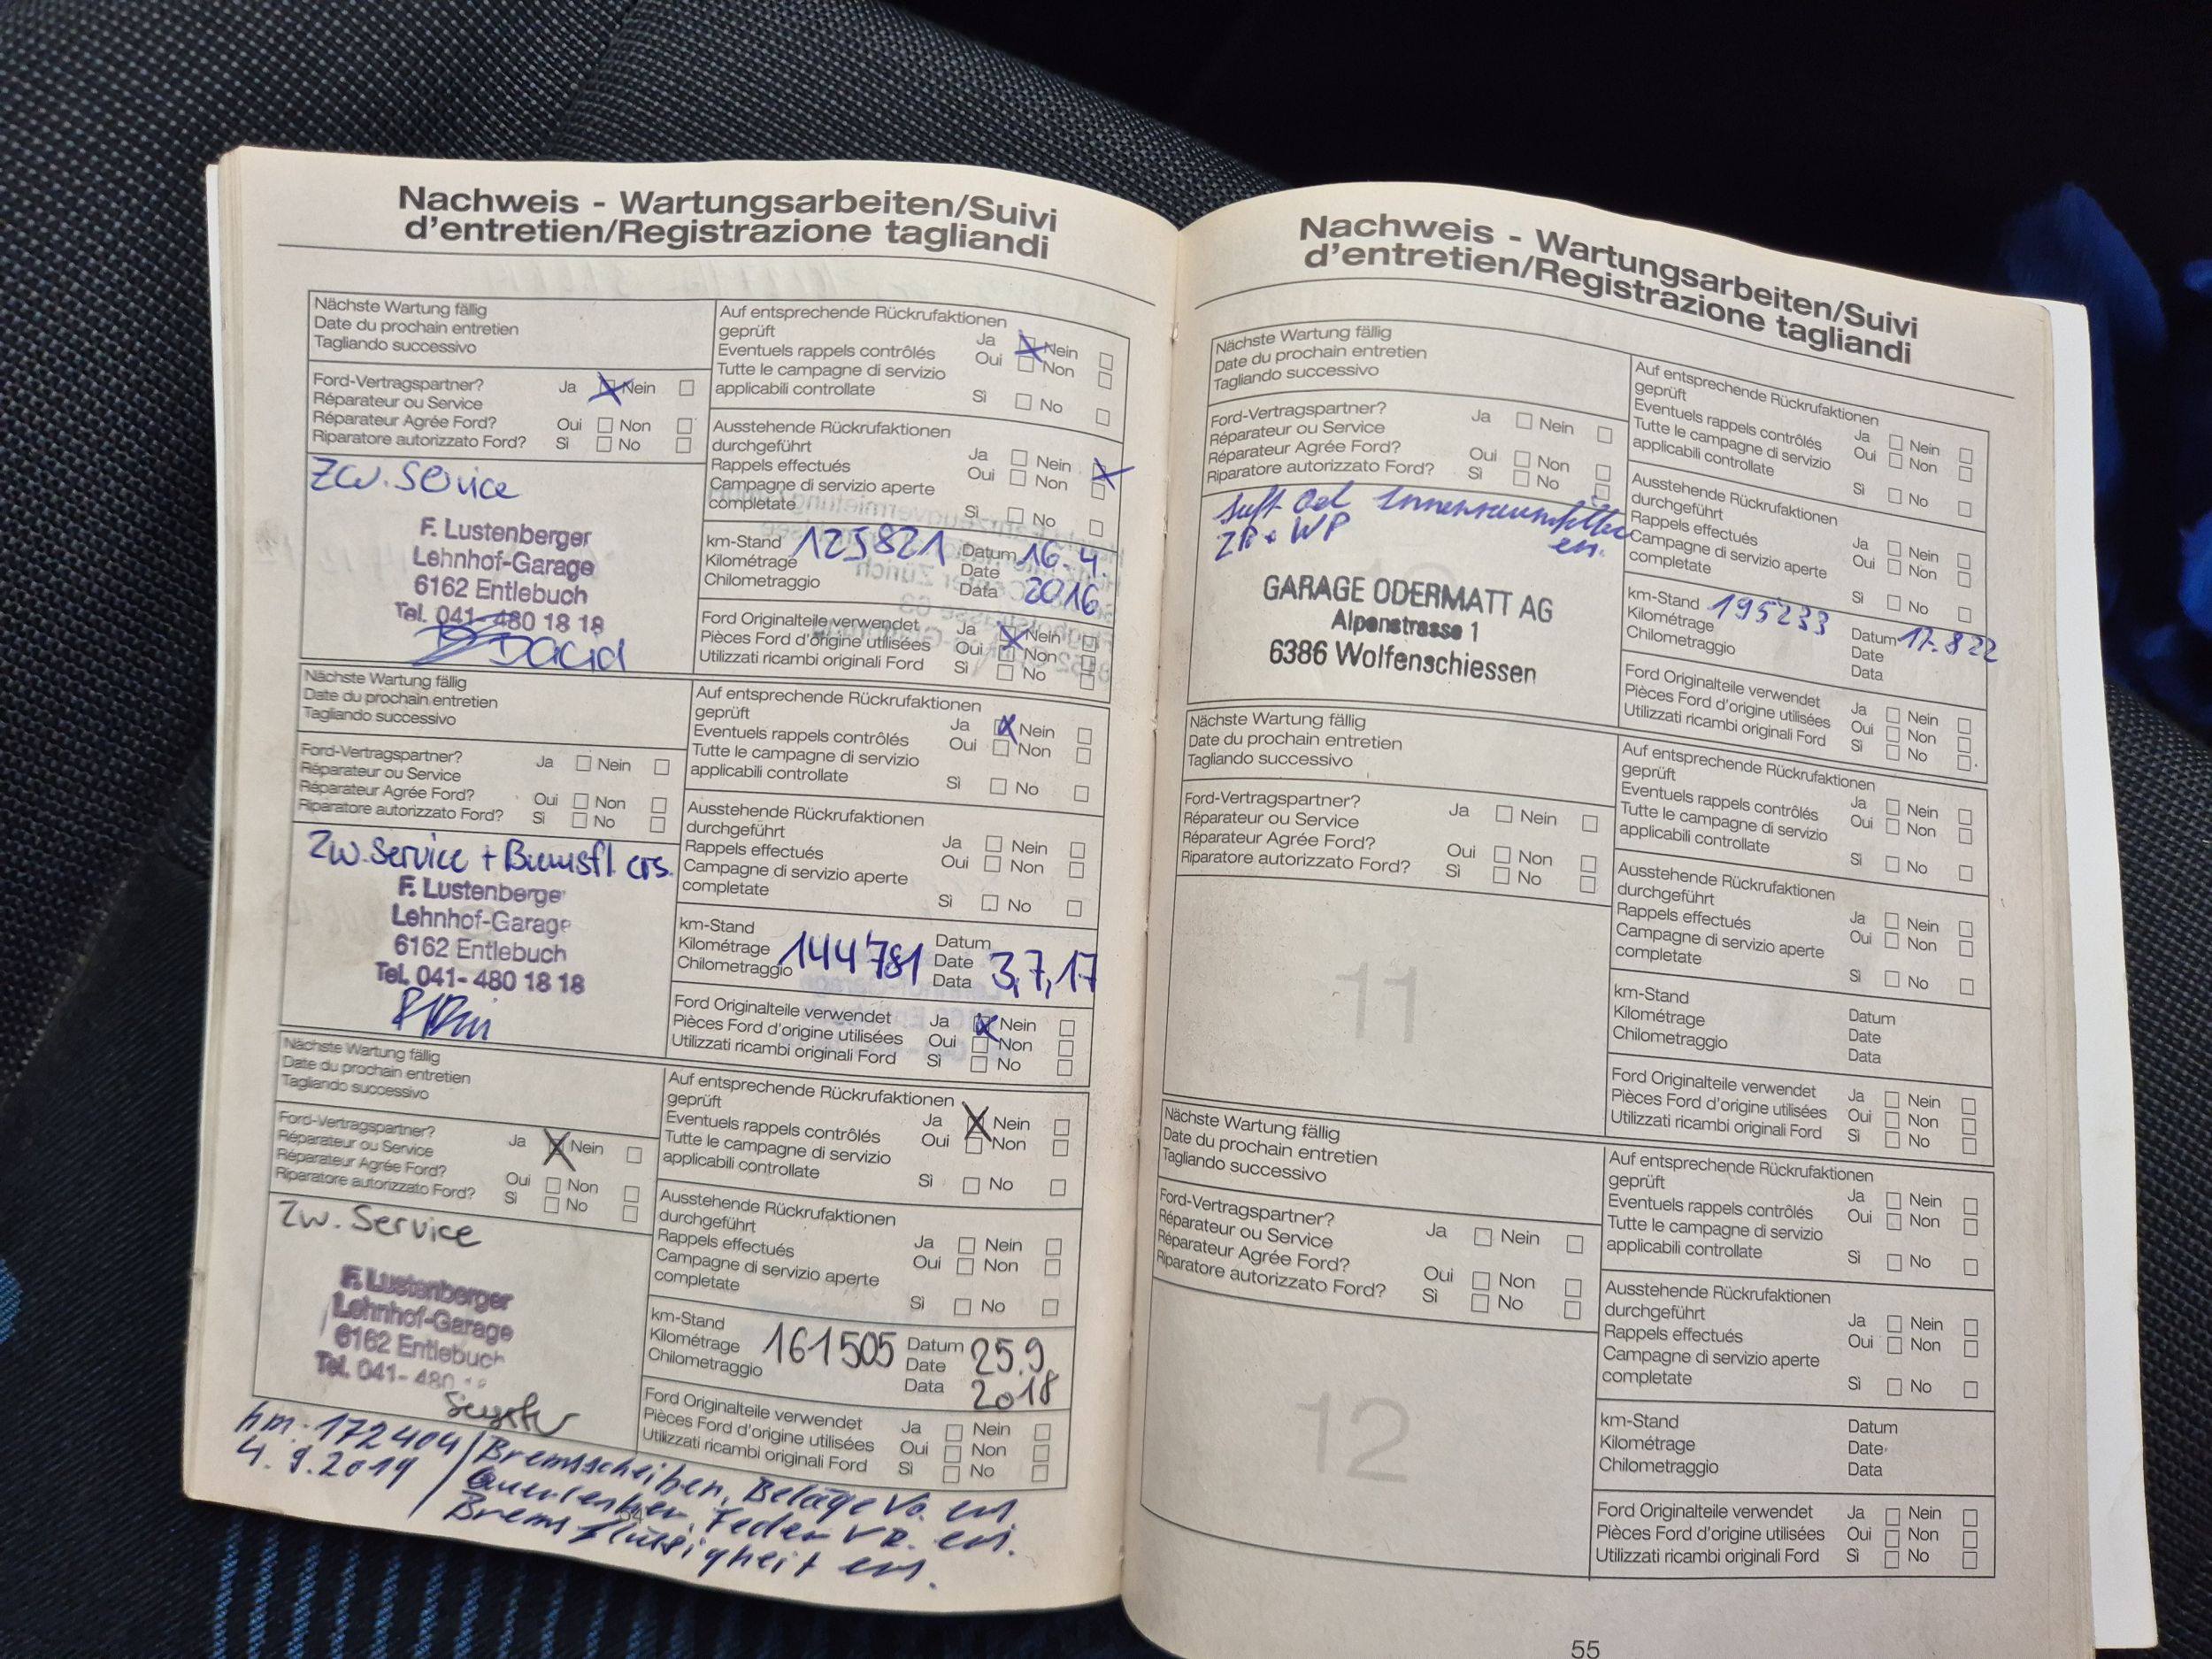 Nachweis - Wartungsarbeiten/Suivi
d'entretien/Registrazione tagliandi
Nächste Wartung fällig
Date du prochain entretien
Tagliando successivo
Ford-Vertragspartner? Ja Nein
Réparateur ou Service
Réparateur Agrée Ford? Oui Non
Riparatore autorizzato Ford? Sì No
Zw. Service
F. Lustenberger
Lehnhof-Garage
6162 Entlebuch
Tel. 041-480 18 18
Auf entsprechende Rückrufaktionen
geprüft Ja Nein
Eventuels rappels contrôlés Oui Non
Tutte le campagne di servizio
applicabili controllate Sì No
Ausstehende Rückrufaktionen
durchgeführt Ja Nein
Rappels effectués Oui Non
Campagne di servizio aperte
completate Sì No
km-Stand 125821 Datum 16.4.
Kilométrage Date 2016
Chilometraggio Data
Ford Originalteile verwendet Ja Nein
Pièces Ford d'origine utilisées Oui Non
Utilizzati ricambi originali Ford Sì No
Nächste Wartung fällig
Date du prochain entretien
Tagliando successivo
Ford-Vertragspartner? Ja Nein
Réparateur ou Service
Réparateur Agrée Ford? Oui Non
Riparatore autorizzato Ford? Sì No
Zw. Service + Bremsfl. ers.
F. Lustenberge
Lehnhof-Garage
6162 Entlebuch
Tel. 041-480 18 18
Auf entsprechende Rückrufaktionen
geprüft Ja Nein
Eventuels rappels contrôlés Oui Non
Tutte le campagne di servizio
applicabili controllate Sì No
Ausstehende Rückrufaktionen
durchgeführt Ja Nein
Rappels effectués Oui Non
Campagne di servizio aperte
completate Sì No
km-Stand Datum
Kilométrage 144'781 Date 3,7,17
Chilometraggio Data
Ford Originalteile verwendet Ja Nein
Pièces Ford d'origine utilisées Oui Non
Utilizzati ricambi originali Ford Sì No
Nächste Wartung fällig
Date du prochain entretien
Tagliando successivo
Ford-Vertragspartner? Ja Nein
Réparateur ou Service
Réparateur Agrée Ford? Oui Non
Riparatore autorizzato Ford? Sì No
Zw. Service
F. Lustenberger
Lehnhof-Garage
6162 Entlebuch
Tel. 041-480
Auf entsprechende Rückrufaktionen
geprüft Ja Nein
Eventuels rappels contrôlés Oui Non
Tutte le campagne di servizio
applicabili controllate Sì No
Ausstehende Rückrufaktionen
durchgeführt Ja Nein
Rappels effectués Oui Non
Campagne di servizio aperte
completate Sì No
km-Stand Datum 25.9.
Kilométrage 161505 Date 2018
Chilometraggio Data
Ford Originalteile verwendet Ja Nein
Pièces Ford d'origine utilisées Oui Non
Utilizzati ricambi originali Ford Sì No
km: 172404 / Bremsscheiben, Beläge Vo. ers
4.9.2019 Querlenker, Feder VR. ers.
Bremsflüssigkeit ers.
54
Nachweis - Wartungsarbeiten/Suivi
d'entretien/Registrazione tagliandi
Nächste Wartung fällig
Date du prochain entretien
Tagliando successivo
Ford-Vertragspartner? Ja Nein
Réparateur ou Service
Réparateur Agrée Ford? Oui Non
Riparatore autorizzato Ford? Sì No
Luft Oel Innenraumfilter
ZR + WP ers.
GARAGE ODERMATT AG
Alpenstrasse 1
6386 Wolfenschiessen
Auf entsprechende Rückrufaktionen
geprüft Ja Nein
Eventuels rappels contrôlés Oui Non
Tutte le campagne di servizio
applicabili controllate Sì No
Ausstehende Rückrufaktionen
durchgeführt Ja Nein
Rappels effectués Oui Non
Campagne di servizio aperte
completate Sì No
km-Stand 195233 Datum 17.8 22
Kilométrage Date
Chilometraggio Data
Ford Originalteile verwendet Ja Nein
Pièces Ford d'origine utilisées Oui Non
Utilizzati ricambi originali Ford Sì No
Nächste Wartung fällig
Date du prochain entretien
Tagliando successivo
Ford-Vertragspartner? Ja Nein
Réparateur ou Service
Réparateur Agrée Ford? Oui Non
Riparatore autorizzato Ford? Sì No
11
Auf entsprechende Rückrufaktionen
geprüft Ja Nein
Eventuels rappels contrôlés Oui Non
Tutte le campagne di servizio
applicabili controllate Sì No
Ausstehende Rückrufaktionen
durchgeführt Ja Nein
Rappels effectués Oui Non
Campagne di servizio aperte
completate Sì No
km-Stand Datum
Kilométrage Date
Chilometraggio Data
Ford Originalteile verwendet Ja Nein
Pièces Ford d'origine utilisées Oui Non
Utilizzati ricambi originali Ford Sì No
Nächste Wartung fällig
Date du prochain entretien
Tagliando successivo
Ford-Vertragspartner? Ja Nein
Réparateur ou Service
Réparateur Agrée Ford? Oui Non
Riparatore autorizzato Ford? Sì No
12
Auf entsprechende Rückrufaktionen
geprüft Ja Nein
Eventuels rappels contrôlés Oui Non
Tutte le campagne di servizio
applicabili controllate Sì No
Ausstehende Rückrufaktionen
durchgeführt Ja Nein
Rappels effectués Oui Non
Campagne di servizio aperte
completate Sì No
km-Stand Datum
Kilométrage Date
Chilometraggio Data
Ford Originalteile verwendet Ja Nein
Pièces Ford d'origine utilisées Oui Non
Utilizzati ricambi originali Ford Sì No
55